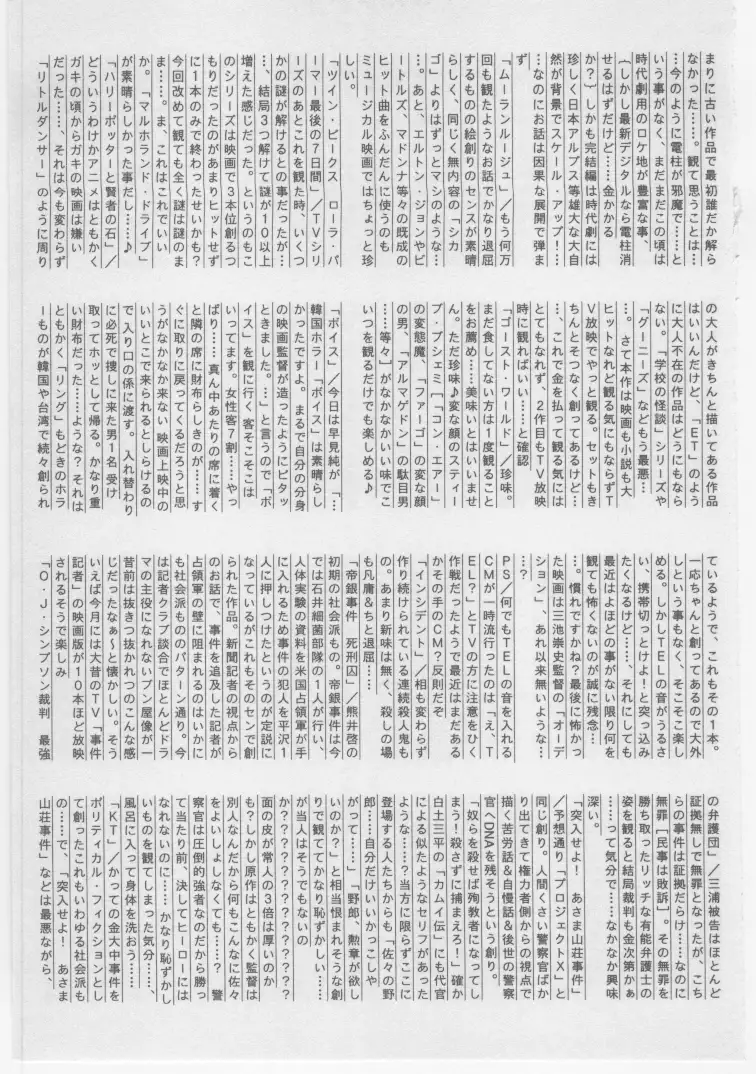 まりに古い作品で最初誰だか解ら
なかった……。観て思うことは…
…今のように電柱が邪魔で……と
いう事がなく、まだまだこの頃は
時代劇用のロケ地が豊富な事、
(しかし最新デジタルなら電柱消
せるはずだけど……金かかる
か?)しかも完結編は時代劇には
珍しく日本アルプス等雄大な大自
然が背景でスケール・アップ!…
…なのにお話は因果な展開で弾ま
ず
「ムーランルージュ」/もう何万
回も観たようなお話でかなり退屈
するものの絵創りのセンスが素晴
らしく、同じく無内容の「シカ
ゴ」よりはずっとマシのような…
…。あと、エルトン・ジョンやビ
ートルズ、マドンナ等々の既成の
ヒット曲をふんだんに使うのも
ミュージカル映画ではちょっと珍
しい。
「ツイン・ピークス ローラ・パ
ーマー最後の7日間」/TVシリ
ーズのあとこれを観た時、いくつ
かの謎が解けるとの事だったが…
…、結局3つ解けて謎が10以上
増えた感じだった。というのもこ
のシリーズは映画で3本位創るつ
もりだったのがあまりヒットせず
に1本のみで終わったせいかも?
今回改めて観ても全く謎は謎のま
ま……。ま、これはこれでいい
か。「マルホランド・ドライブ」
が素晴らしかった事だし……♪
「ハリーポッターと賢者の石」/
どういうわけかアニメはともかく
ガキの頃からガキの映画は嫌い
だった……、それは今も変わらず
「リトルダンサー」のように周り
の大人がきちんと描いてある作品
はいいんだけど、「ET」のよう
に大人不在の作品はどうにもなら
ない。「学校の怪談」シリーズや
「グーニーズ」などもう最悪…
…。さて本作は映画も小説も大
ヒットなれど観る気にもならずT
V放映でやっと観る。セットもき
ちんとそつなく創ってあるけど…
…、これで金を払って観る気には
とてもなれず、2作目もTV放映
時に観ればいい……と確認
「ゴースト・ワールド」/珍味。
まだ食してない方は1度観ること
をお薦め……美味いとはいいませ
ん。ただ珍味♪変な顔のスティー
ブ・ブシェミ[「コン・エアー」
の変態魔、「ファーゴ」の変な顔
の男、「アルマゲドン」の駄目男
……等々]がなかなかいい味でこ
いつを観るだけでも楽しめる♪
「ボイス」/今日は早見純が「…
韓国ホラー「ボイス」は素晴らし
かったですよ。まるで自分の分身
の映画監督が造ったようにピタッ
ときました。…」と言うので「ボ
イス」を観に行く客そこそこは
いってます。女性客7割……やっ
ぱり……真ん中あたりの席に着く
と隣の席に財布らしきのが……す
ぐに取りに戻ってくるだろうと思
うがなかなか来ない 映画上映中の
いいとこで来られるとしらけるの
で入り口の係に渡す。入れ替わり
に必死で捜しに来た男1名 受け
取ってホッとして帰る。かなり重
い財布だった……ような? それは
ともかく「リング」もどきのホラ
ーものが韓国や台湾で続々創られ
ているようで、これもその1本。
一応ちゃんと創ってあるので大外
しという事もなく、そこそこ楽し
める。しかしTELの音がうるさ
い、携帯切っとけよ!と突っ込み
たくなるけど……、それにしても
最近はよほどの事がない限り何を
観ても怖くないのが誠に残念…
…。慣れですかね?最後に怖かっ
た映画は三池崇史監督の「オーデ
ション」、あれ以来無いような…
…?
PS/何でもTELの音を入れる
CMが一時流行ったのは「え、T
EL?」とTVの方に注意をひく
作戦だったようで最近はまだある
かその手のCM? 反則だぞ
「インシデント」/相も変わらず
作り続けられている連続殺人鬼も
の。あまり新味は無く、殺しの場
も凡庸&ちと退屈……
「帝銀事件 死刑囚」/熊井啓の
初期の社会派もの。帝銀事件は今
では石井細菌部隊の1人が行い、
人体実験の資料を米国占領軍が手
に入れるため事件の犯人を平沢1
人に押しつけたというのが定説に
なっているがこれもそのセンで創
られた作品。新聞記者の視点から
のお話で、事件を追及した記者が
占領軍の壁に阻まれるのはいかに
も社会派もののパターン通り。今
は記者クラブ談合でほとんどドラ
マの主役になれないブン屋像が一
昔前は抜きつ抜かれつのこんな感
じだったなぁ〜と懐かしい。そう
いえば今月には大昔のTV「事件
記者」の映画版が10本ほど放映
されるそうで楽しみ
「O・J・シンプソン裁判 最強
の弁護団」/三浦被告はほとんど
証拠無しで無罪となったが、こち
らの事件は証拠だらけ……なのに
無罪[民事は敗訴]。その無罪を
勝ち取ったリッチな有能弁護士の
姿を観ると結局裁判も金次第かぁ
……って気分で……なかなか興味
深い。
「突入せよ! あさま山荘事件」
/予想通り「プロジェクトX」と
同じ創り。人間くさい警察官ばか
り出てきて権力者側からの視点で
描く苦労話&自慢話&後世の警察
官へDNAを残そうという創り。
「奴らを殺せば殉教者になってし
まう!殺さずに捕まえろ!」確か
白土三平の「カムイ伝」にも代官
による似たようなセリフがあった
ような……?当方に限らずここに
登場する人たちからも「佐々の野
郎……自分だけいいかっこしや
がって……」「野郎、勲章が欲し
いのか?」と相当恨まれそうな創
りで観ててかなり恥ずかしい……
が当人はそうでもないの
か???????????????
面の皮が常人の3倍は厚いのか
も?しかし原作はともかく監督は
別人なんだから何もこんなに佐々
をよいしょしなくても……? 警
察官は圧倒的強者なのだから勝っ
て当たり前、決してヒーローには
なれないのに……かなり恥ずかし
いものを観てしまった気分……、
風呂に入って身体を洗おう……
「KT」/かっての金大中事件を
ポリティカル・フィクションとし
て創ったこれもいわゆる社会派も
の……で、「突入せよ! あさま
山荘事件」などは最悪ながら、